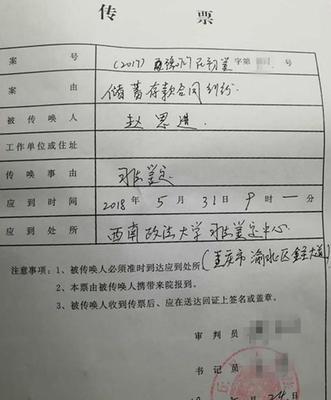 传 票
案 号 (2017) 民初 字第 号
案 由 储蓄存款合同纠纷
被传唤人 赵思进
工作单位或住址
传唤事由 司法鉴定
应到时间 2018年5月31日9时一分
应到处所 西南政法大学司法鉴定中心
(重庆市渝北区 大道)
注意事项：1、被传唤人必须准时到达应到处所
2、本票由被传唤人携带来院报到。
3、被传唤人收到传票后、应在送达回证上签名或盖章。
审 判 员
书 记 员